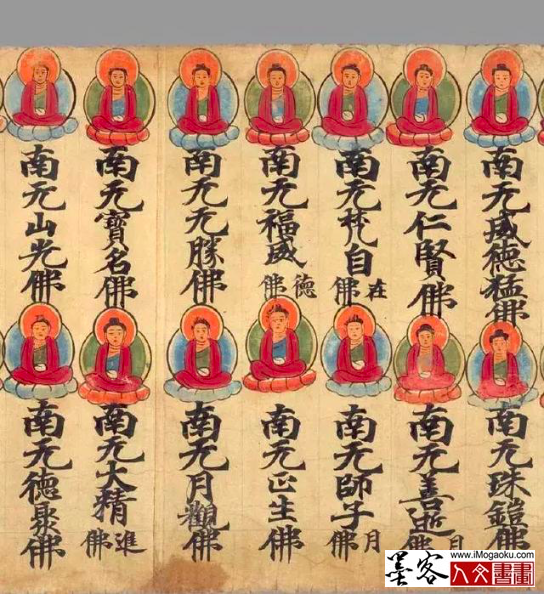 南无威德猛佛
南无珠鎧佛
南无仁賢佛
南无善逝月佛
南无梵自在佛
南无師子月佛
南无福威德佛
南无正生佛
南无无勝佛
南无月觀佛
南无寶名佛
南无大精進佛
南无山光佛
南无德聚佛
墨客
www.iMogaoku.com
人文書畫